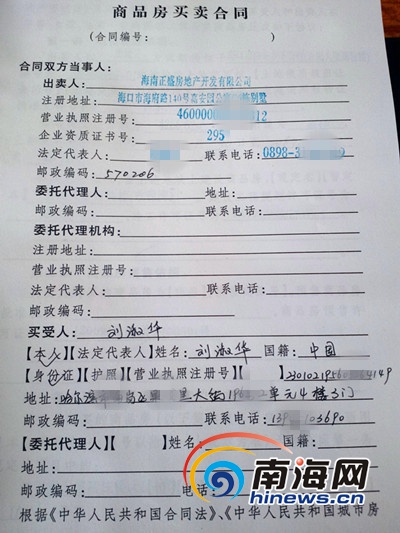 商品房买卖合同
(合同编号: )
合同双方当事人:
出卖人: 海南正盛房地产开发有限公司
注册地址: 海口市海府路140号嘉安园 别墅
营业执照注册号: 460000 12
企业资质证书号: 295
法定代表人: 联系电话: 0898-3 0
邮政编码: 570206
委托代理人: 地址:
邮政编码: 联系电话:
委托代理机构:
注册地址:
营业执照注册号:
法定代表人: 联系电话:
邮政编码:
买受人: 刘淑华
【本人】【法定代表人】姓名: 刘淑华 国籍: 中国
【身份证】【护照】【营业执照注册号】【 】 2301021956 4149
地址: 哈尔滨市 单元4楼3门
邮政编码: 联系电话: 139 103690
【委托代理人】【 】姓名: 国籍:
地址:
邮政编码: 电话:
根据《中华人民共和国合同法》、《中华人民共和国城市房
南海网
hinews.cn